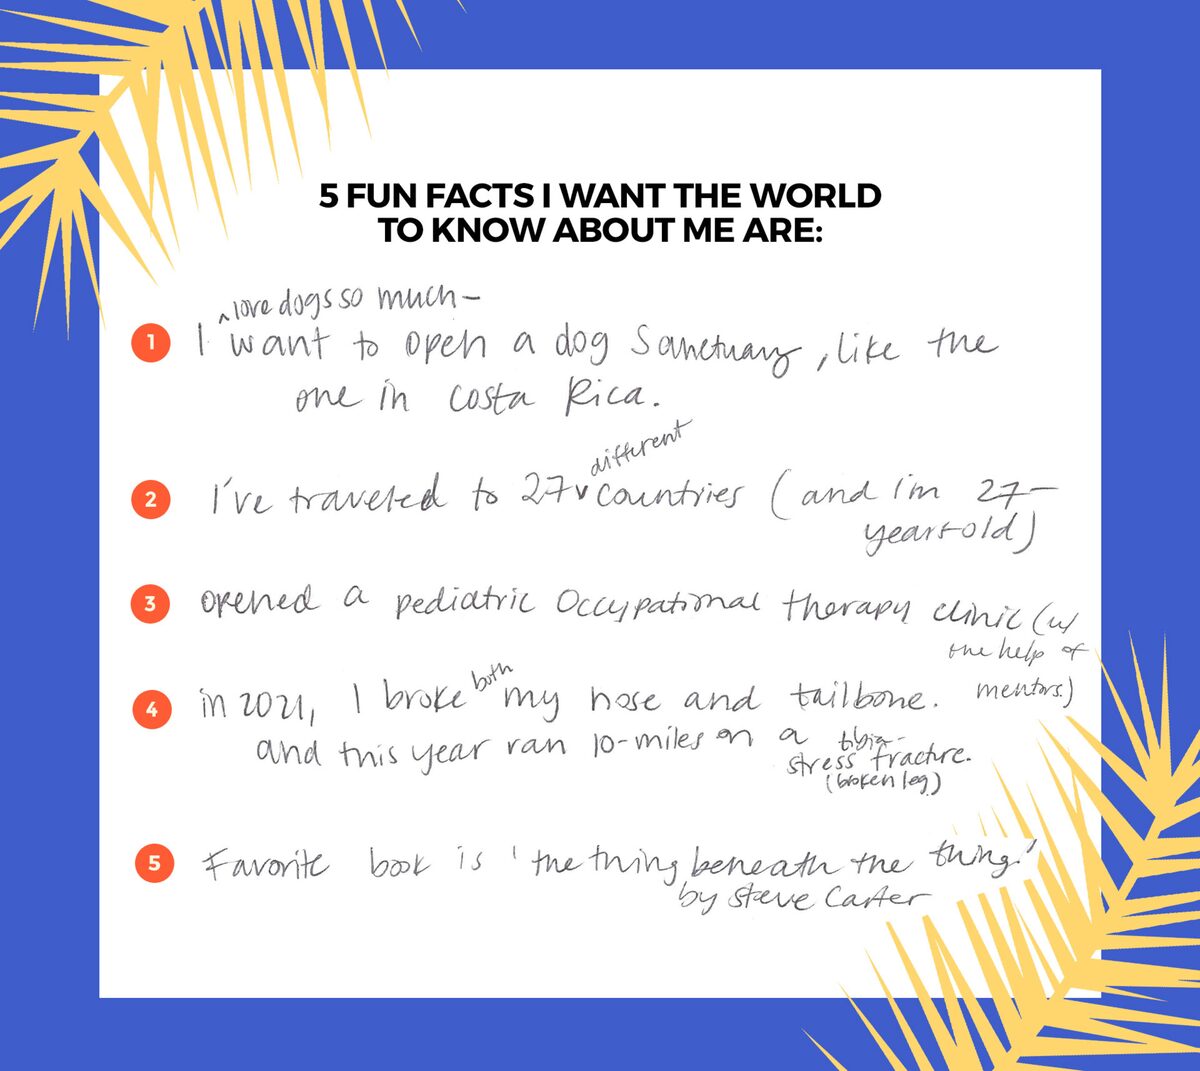 5 FUN FACTS I WANT THE WORLD
TO KNOW ABOUT ME ARE:
^ love dogs so much -
1 I want to open a dog Sanctuary, like the
one in Costa Rica.
different
2 I've traveled to 27 v countries (and i'm 27-
years-old)
3 opened a pediatric Occupational therapy clinic (w/
the help of
mentors.)
both
4 in 2021, I broke my nose and tailbone.
and this year ran 10-miles on a tibia-
stress fracture.
(broken leg)
5 Favorite book is 'the thing beneath the thing.'
by Steve Carter